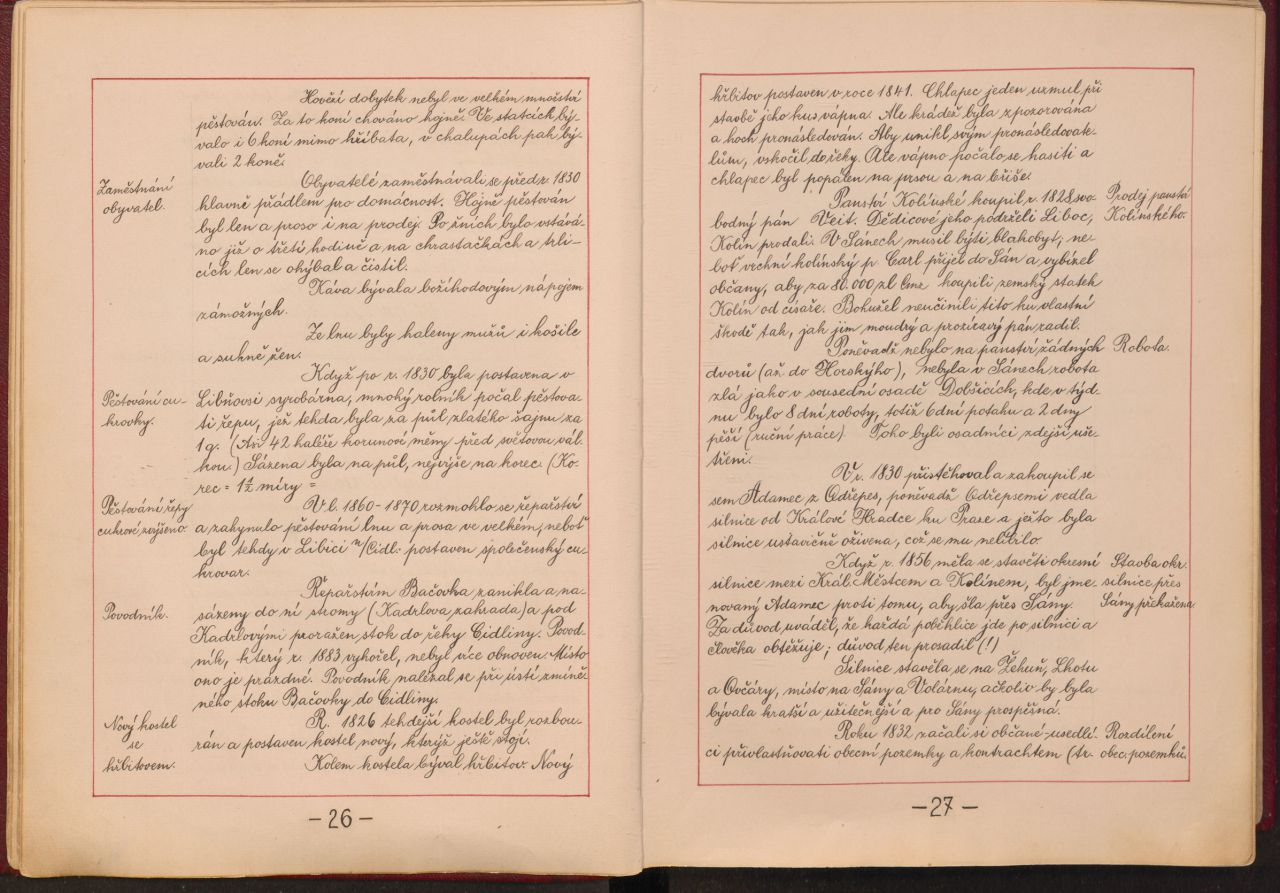 Hovězí dobytek nebyl ve velkém množství
pěstován. Za to koní chováno hojně. Ve statcích bý-
valo i 6 koní mimo hříbata, v chalupách pak bý-
vali 2 koně.
Zaměstnání
obyvatel.
Obyvatelé zaměstnávali se před r. 1830
hlavně přádlem pro domácnost. Hojně pěstován
byl len a proso i na prodej. Po žních bylo vstává-
no již o třetí hodině a na chrastačkách a trli-
cích len se ohýbal a čistil.
Káva bývala božíhodovým nápojem
zámožných.
Ze lnu byly haleny mužů i košile
a sukně žen.
Pěstování cu-
krovky.
Když po r. 1830 byla postavena v
Libňovsi syrobárna, mnohý rolník počal pěstova-
ti řepu, jež tehda byla za půl zlatého šajnu za
1 q. (Asi 42 haléře korunové měny před světovou vál-
kou.) Sázena byla na půl, nejvýše na korec. (Ko-
rec = 1½ míry =
Pěstování řepy
cukrové zvýšeno.
V l. 1860-1870 rozmohlo se řepařství
a zahynulo pěstování lnu a prosa ve velkém, neboť
byl tehdy v Libici n/Cidl. postaven společenský cu-
krovar.
Povodník.
Řepařstvím Bačovka zanikla a na-
sázeny do ní stromy (Kadrlova zahrada) a pod
Kadrlovými proražen stok do řeky Cidliny. Povod-
ník, který r. 1883 vyhořel, nebyl více obnoven. Místo
ono je prázdné. Povodník nalézal se při ústí zmíně-
ného stoku Bačovky do Cidliny.
Nový kostel
se
hřbitovem.
R. 1826 tehdejší kostel byl rozbou-
rán a postaven kostel nový, kterýž ještě stojí.
Kolem kostela býval hřbitov. Nový
-26-
hřbitov postaven v roce 1841. Chlapec jeden uzmul při
stavbě jeho kus vápna. Ale krádež byla zpozorována
a hoch pronásledován. Aby unikl svým pronásledovate-
lům, vskočil do řeky. Ale vápno počalo se hasiti a
chlapec byl popálen na prsou a na břiše.
Prodej panství
Kolínského.
Panství Kolínské koupil r. 1828 svo-
bodný pán Veit. Dědicové jeho podrželi Liboc,
Kolín prodali. V Sánech musil býti blahobyt; ne-
boť vrchní kolínský p. Carl přijel do Sán a vybízel
občany, aby za 80.000 zl koupili zemský statek
Kolín od císaře. Bohužel neučinili tito ku vlastní
škodě tak, jak jim moudrý a prozíravý pán radil.
Robota.
Poněvadž nebylo na panství žádných
dvorů (až do Horskýho), nebyla v Sánech robota
zlá jako v sousední osadě Dobšicích, kde v týd-
nu bylo 8 dní roboty, totiž 6 dní potahu a 2 dny
pěší (ruční práce). Toho byli osadníci zdejší uše-
třeni.
V r. 1830 přistěhoval a zakoupil se
sem Adamec z Odřepes, poněvadž Odřepsemi vedla
silnice od Králové Hradce ku Praze a ježto byla
silnice ustavičně oživena, což se mu nelíbilo.
Stavba okr.
silnice přes
Sány překažena
Když r. 1856 měla se stavěti okresní
silnice mezi Král. Městcem a Kolínem, byl jme-
novaný Adamec proti tomu, aby šla přes Sány.
Za důvod uváděl, že každá poběhlice jde po silnici a
člověka obtěžuje; důvod ten prosadil (!)
Silnice stavěla se na Žehuň, Lhotu
a Ovčáry, místo na Sány a Volárnu, ačkoliv by byla
bývala kratší a užitečnější a pro Sány prospěšná.
Rozdílení
obec. pozemků.
Roku 1832 začali si občané-usedlí-
ci přivlastňovati obecní pozemky a kontrachtem (tr.
-27-